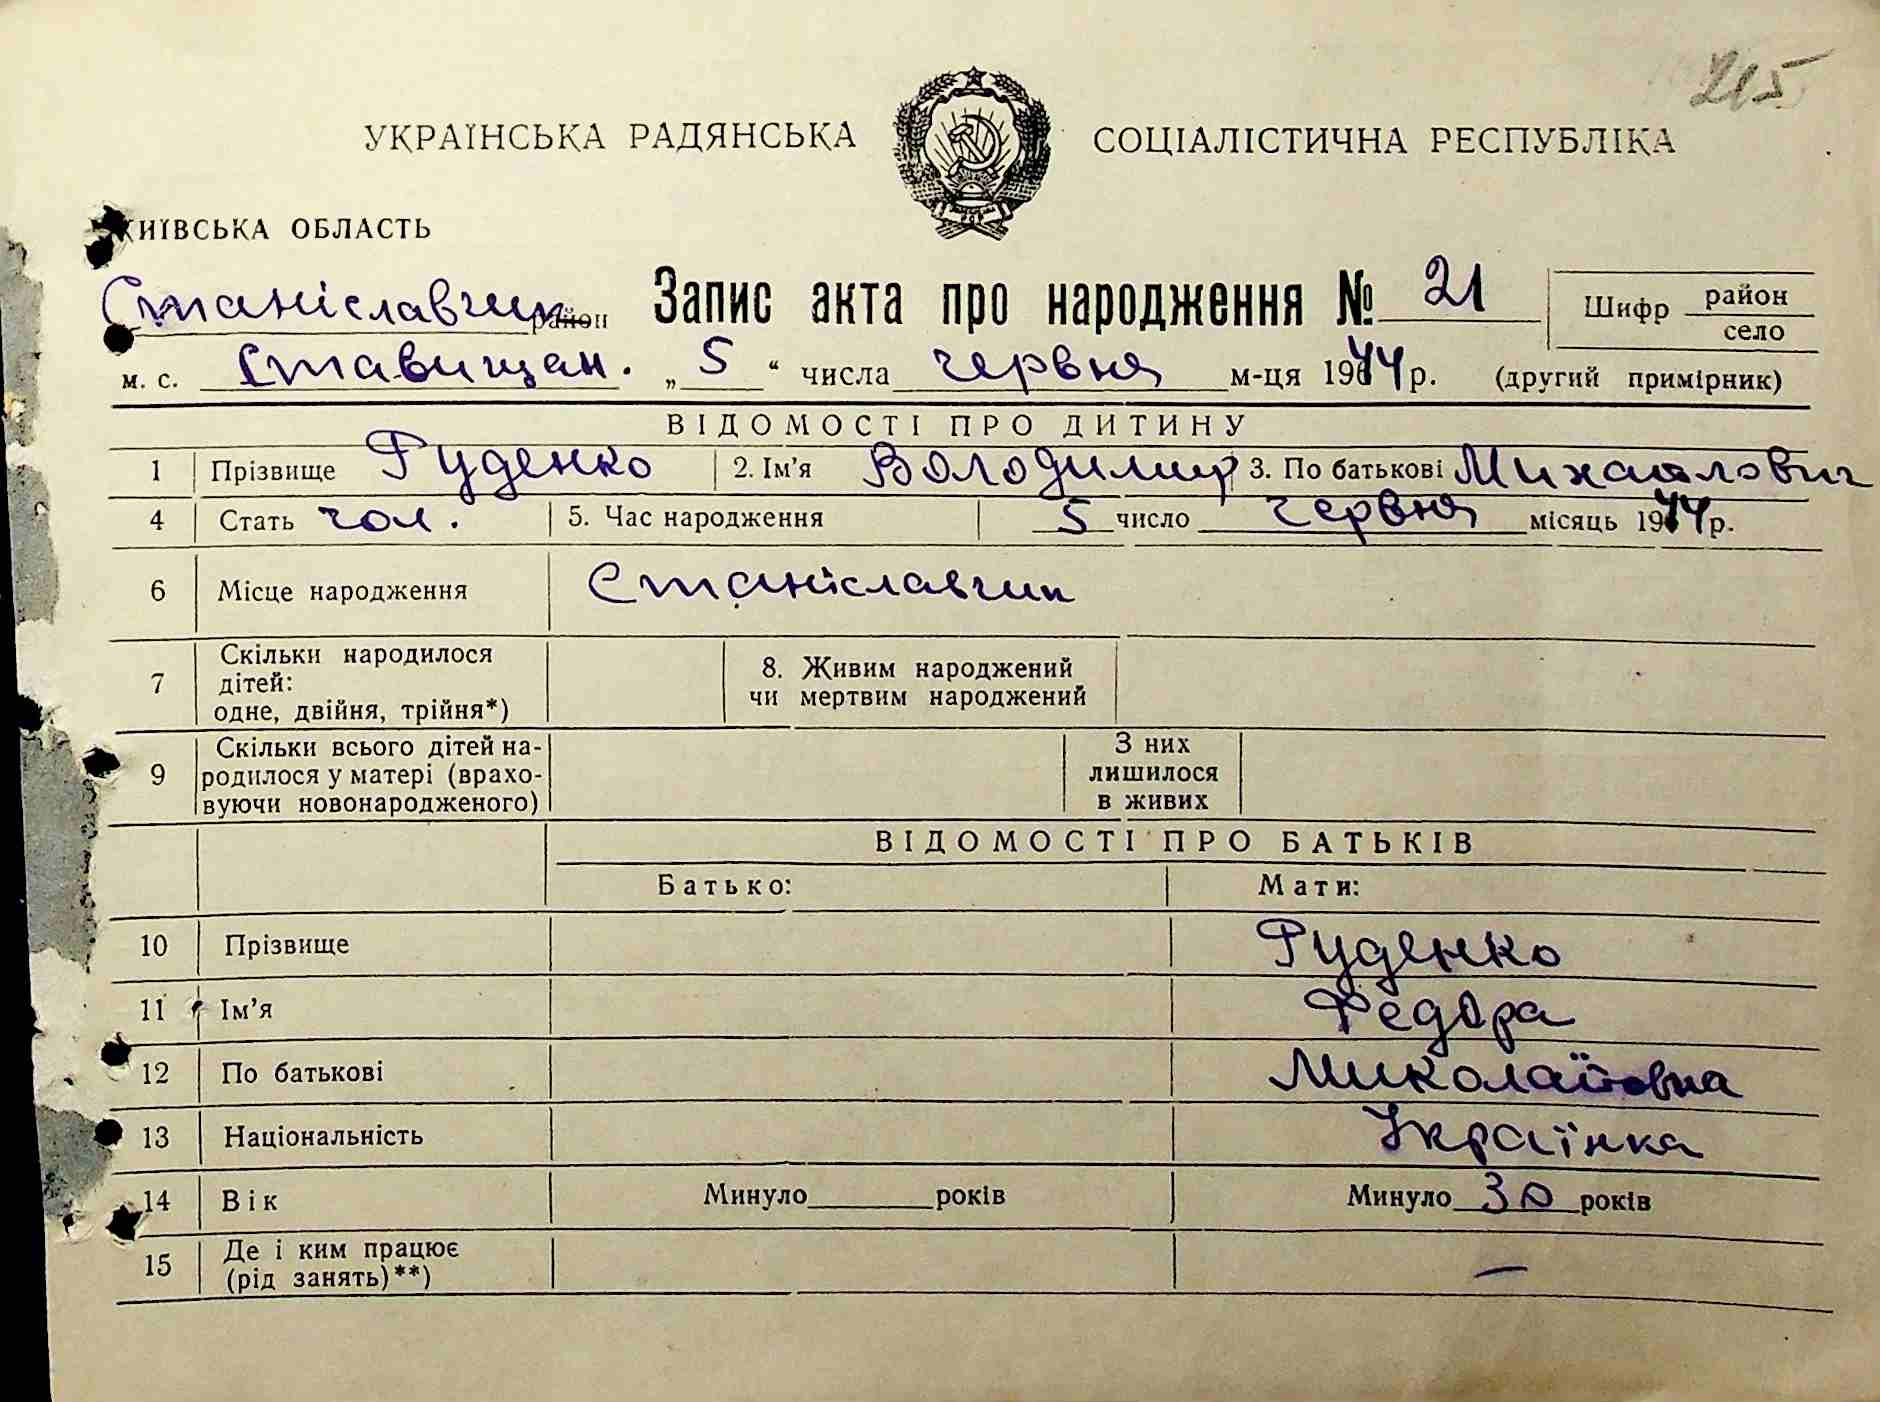 215
УКРАЇНСЬКА РАДЯНСЬКА СОЦІАЛІСТИЧНА РЕСПУБЛІКА
КИЇВСЬКА ОБЛАСТЬ
Станіславчик район Запис акта про народження № 21 Шифр район село
м. с. Ставищан. „ 5 “ числа червня м-ця 1944 р. (другий примірник)
ВІДОМОСТІ ПРО ДИТИНУ
1 Прізвище Руденко 2. Ім'я Володимир 3. По батькові Михайлович
4 Стать чол. 5. Час народження 5 число червня місяць 1944 р.
6 Місце народження Станіславчик
7 Скільки народилося дітей: одне, двійня, трійня*) 8. Живим народжений чи мертвим народжений
9 Скільки всього дітей народилося у матері (враховуючи новонародженого) З них лишилося в живих
ВІДОМОСТІ ПРО БАТЬКІВ
Батько: Мати:
10 Прізвище Руденко
11 Ім'я Федора
12 По батькові Миколаївна
13 Національність Українка
14 Вік Минуло років Минуло 30 років
15 Де і ким працює (рід занять)**) —